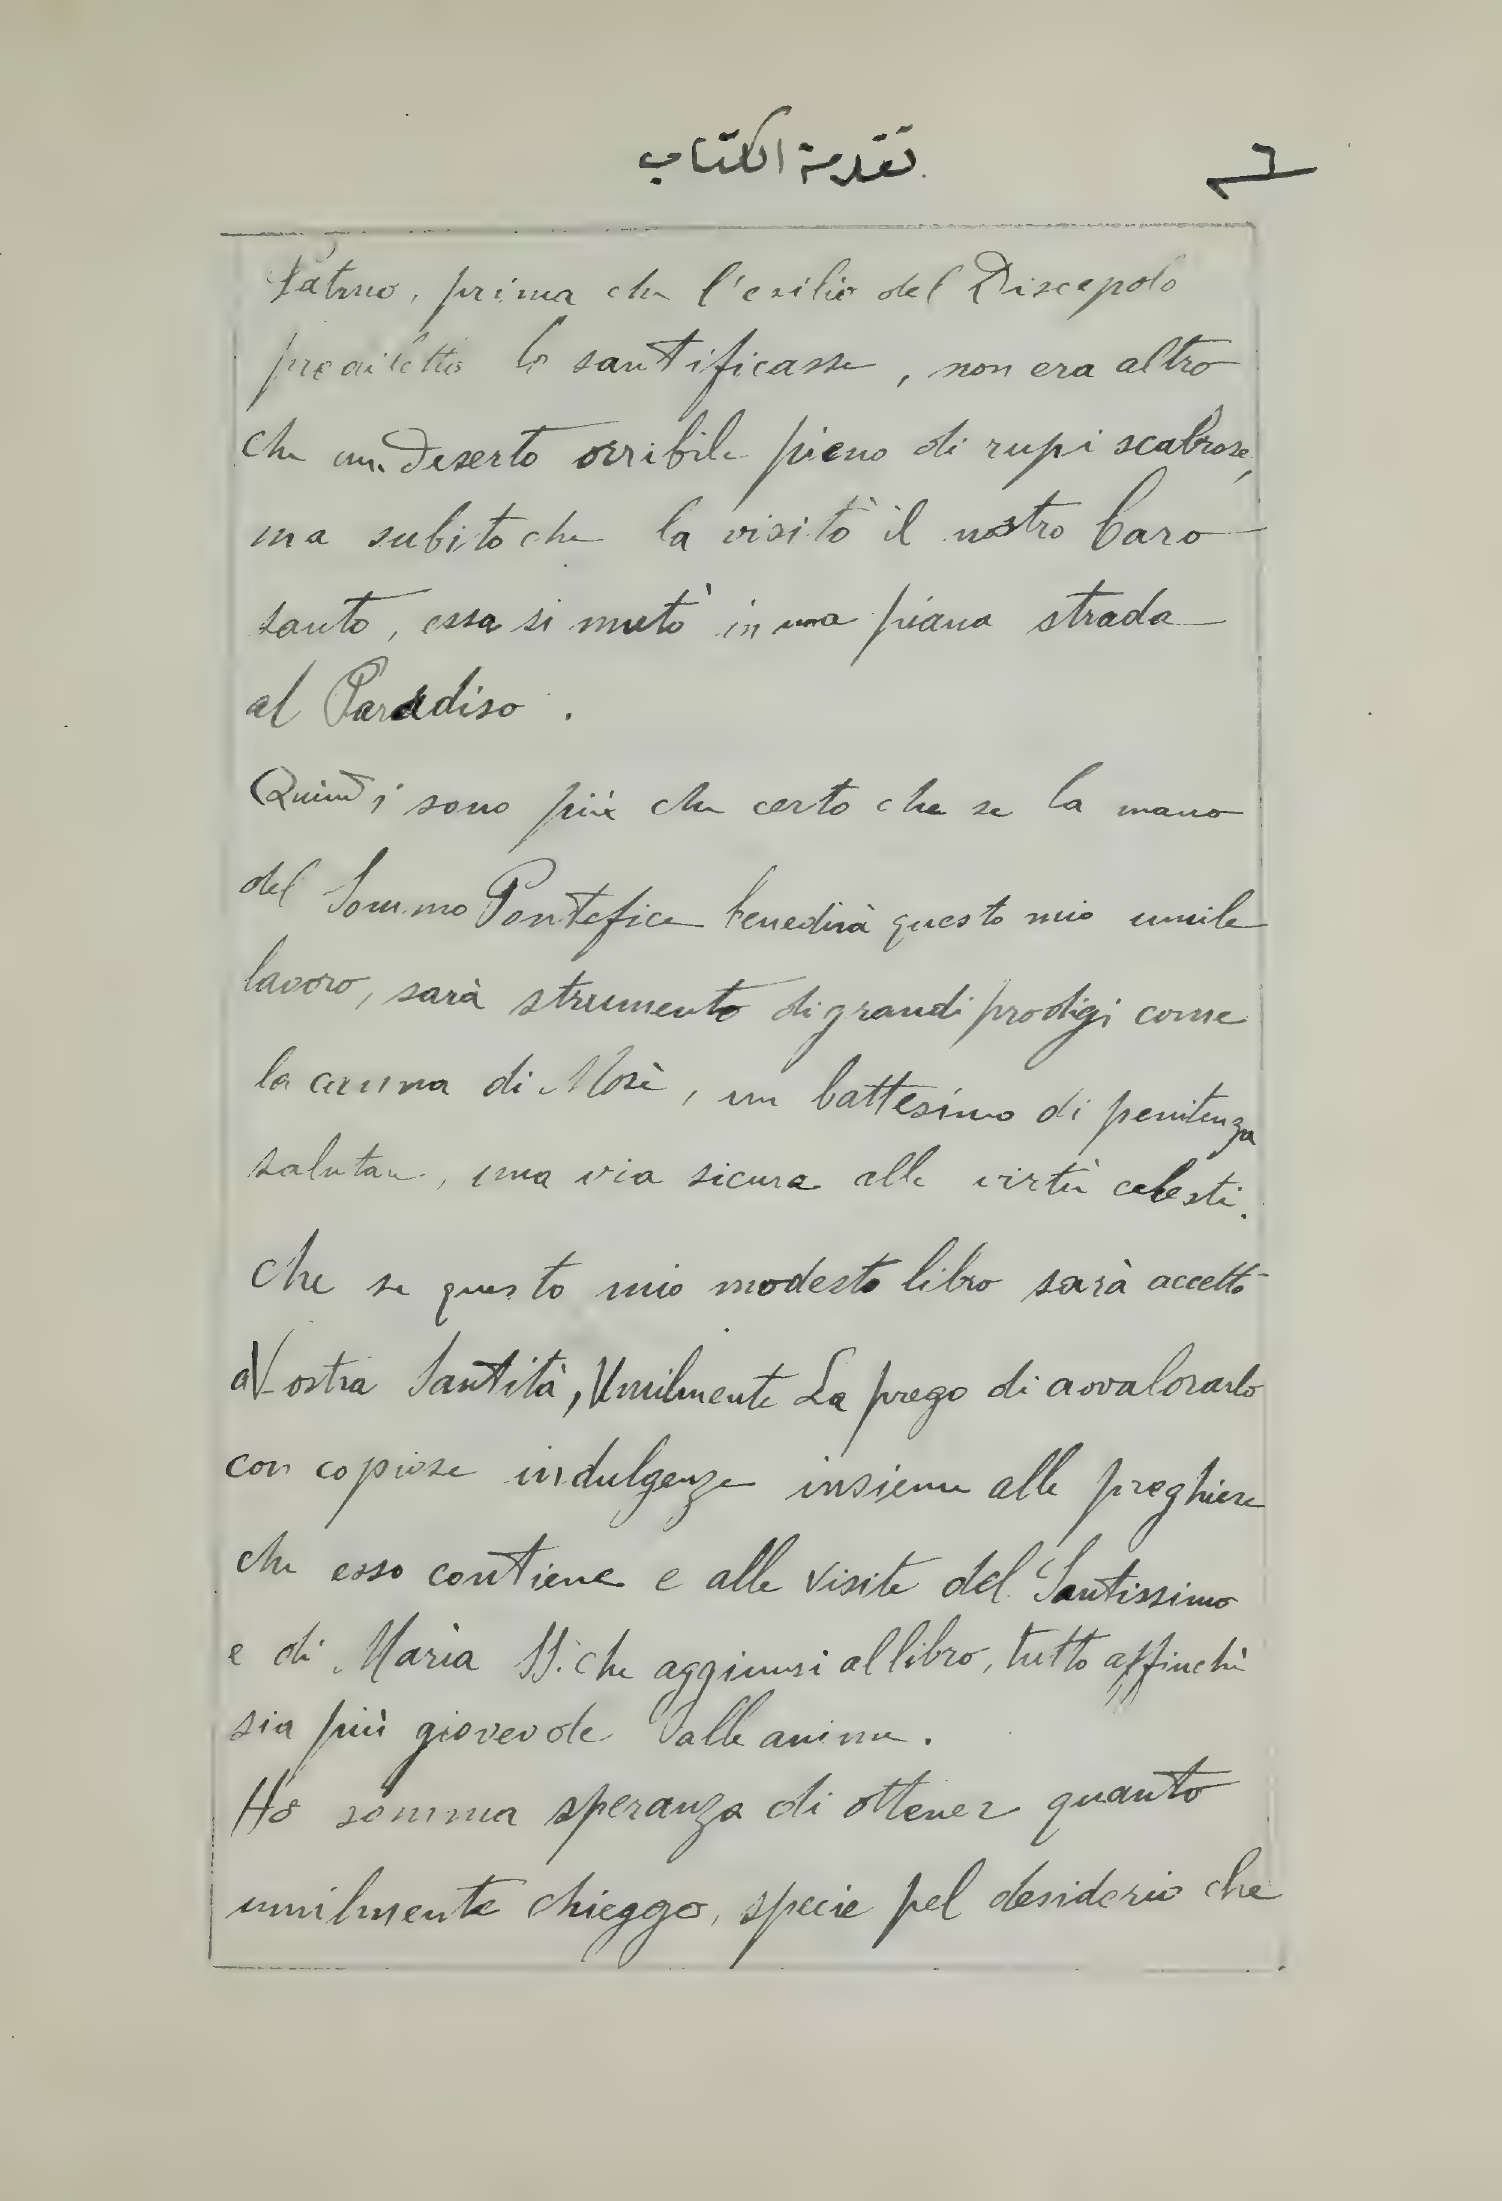 تقدمة الكتاب
٦
Patmo, prima che l'esilio del Discepolo
prediletto lo santificasse, non era altro
che un deserto orribile pieno di rupi scabrose,
ma subito che la visitò il nostro Caro
santo, essa si mutò in una piana strada
al Paradiso.
Quindi sono più che certo che se la mano
del Sommo Pontefice benedirà questo mio umile
lavoro, sarà strumento di grandi prodigi come
la canna di Mosè, un battesimo di penitenza
salutare, una via sicura alle virtù celesti.
Che se questo mio modesto libro sarà accetto
a Vostra Santità, Umilmente La prego di avvalorarlo
con copiose indulgenze insieme alle preghiere
che esso contiene e alle visite del Santissimo
e di Maria SS. che aggiunsi al libro, tutto affinchè
sia più giovevole alle anime.
Ho somma speranza di ottener quanto
umilmente chieggo, specie pel desiderio che